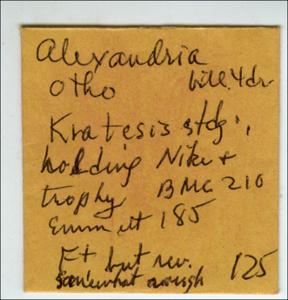 Alexandria
Otho bill. 4dr
Kratesis stdg.,
holding Nike +
trophy BMC 210
Emmett 185
F+ but rev.
somewhat rough 125